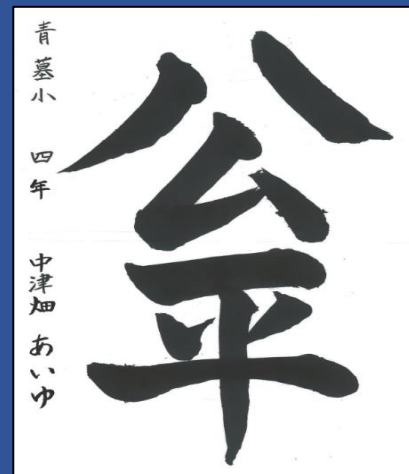 公平
青墓小 四年 中津畑 あいゆ